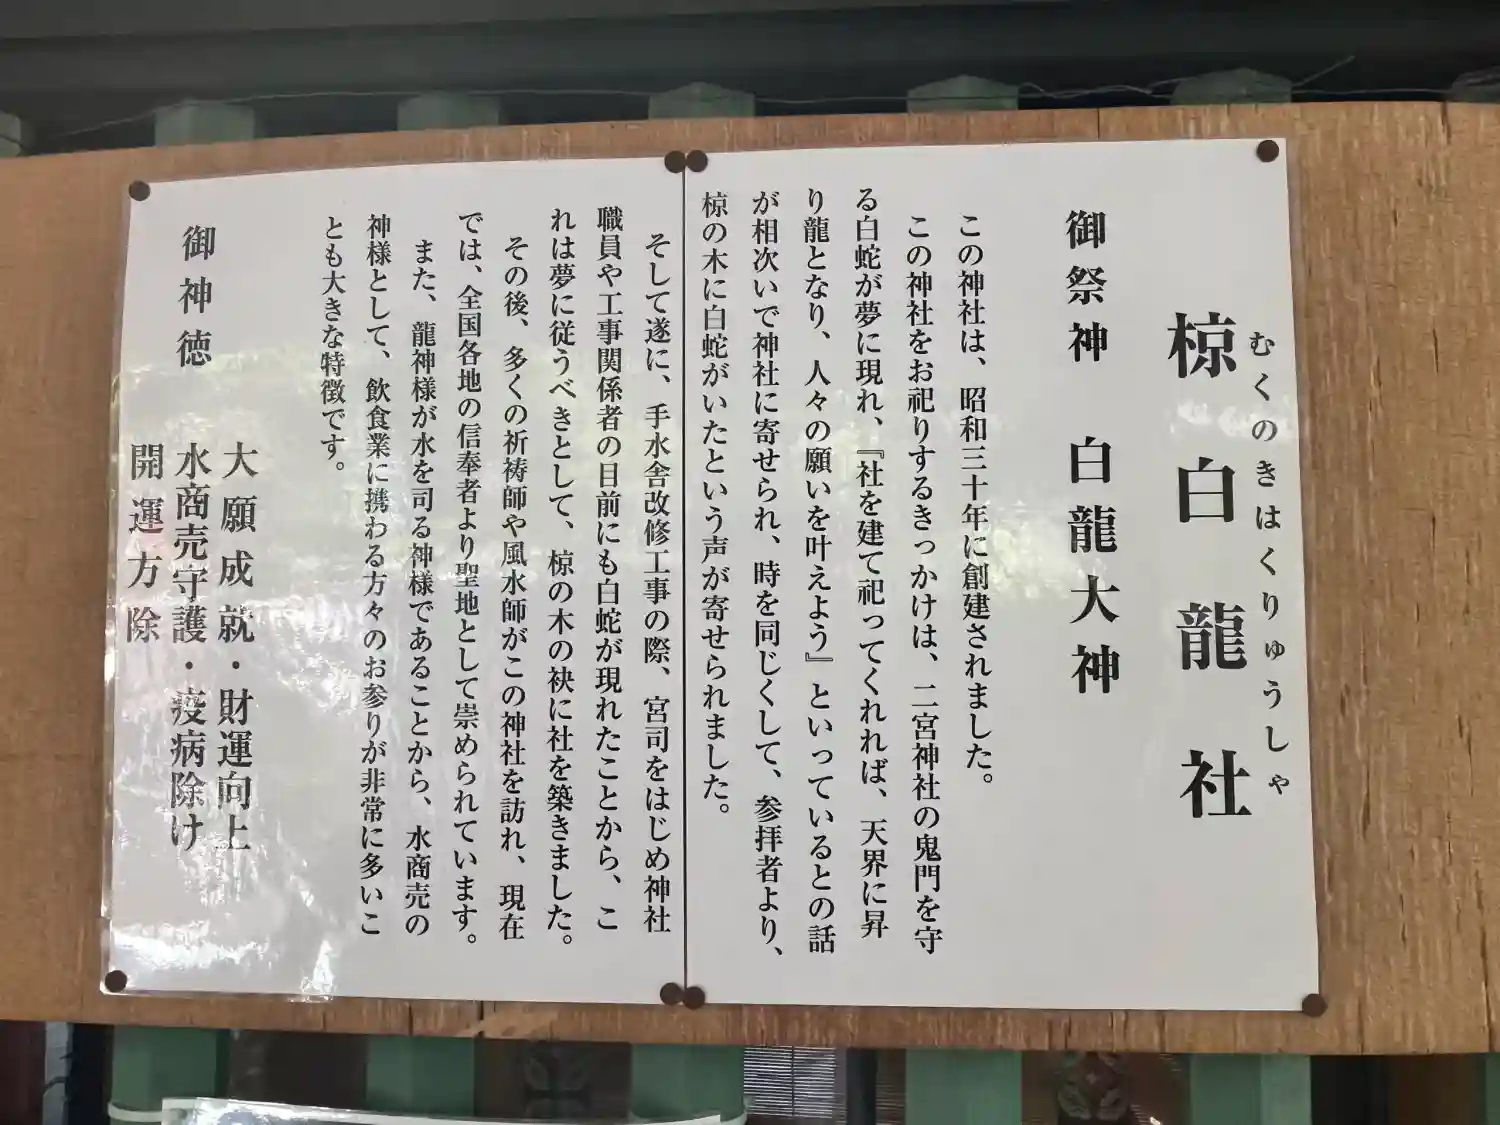 むくのきはくりゅうしゃ
椋白龍社
御祭神 白龍大神
この神社は、昭和三十年に創建されました。
この神社をお祀りするきっかけは、二宮神社の鬼門を守
る白蛇が夢に現れ、『社を建て祀ってくれれば、天界に昇
り龍となり、人々の願いを叶えよう』といっているとの話
が相次いで神社に寄せられ、時を同じくして、参拝者より、
椋の木に白蛇がいたという声が寄せられました。
そして遂に、手水舎改修工事の際、宮司をはじめ神社
職員や工事関係者の目前にも白蛇が現れたことから、こ
れは夢に従うべきとして、椋の木の袂に社を築きました。
その後、多くの祈祷師や風水師がこの神社を訪れ、現在
では、全国各地の信奉者より聖地として崇められています。
また、龍神様が水を司る神様であることから、水商売の
神様として、飲食業に携わる方々のお参りが非常に多いこ
とも大きな特徴です。
御神徳
大願成就・財運向上
水商売守護・疫病除け
開運方除